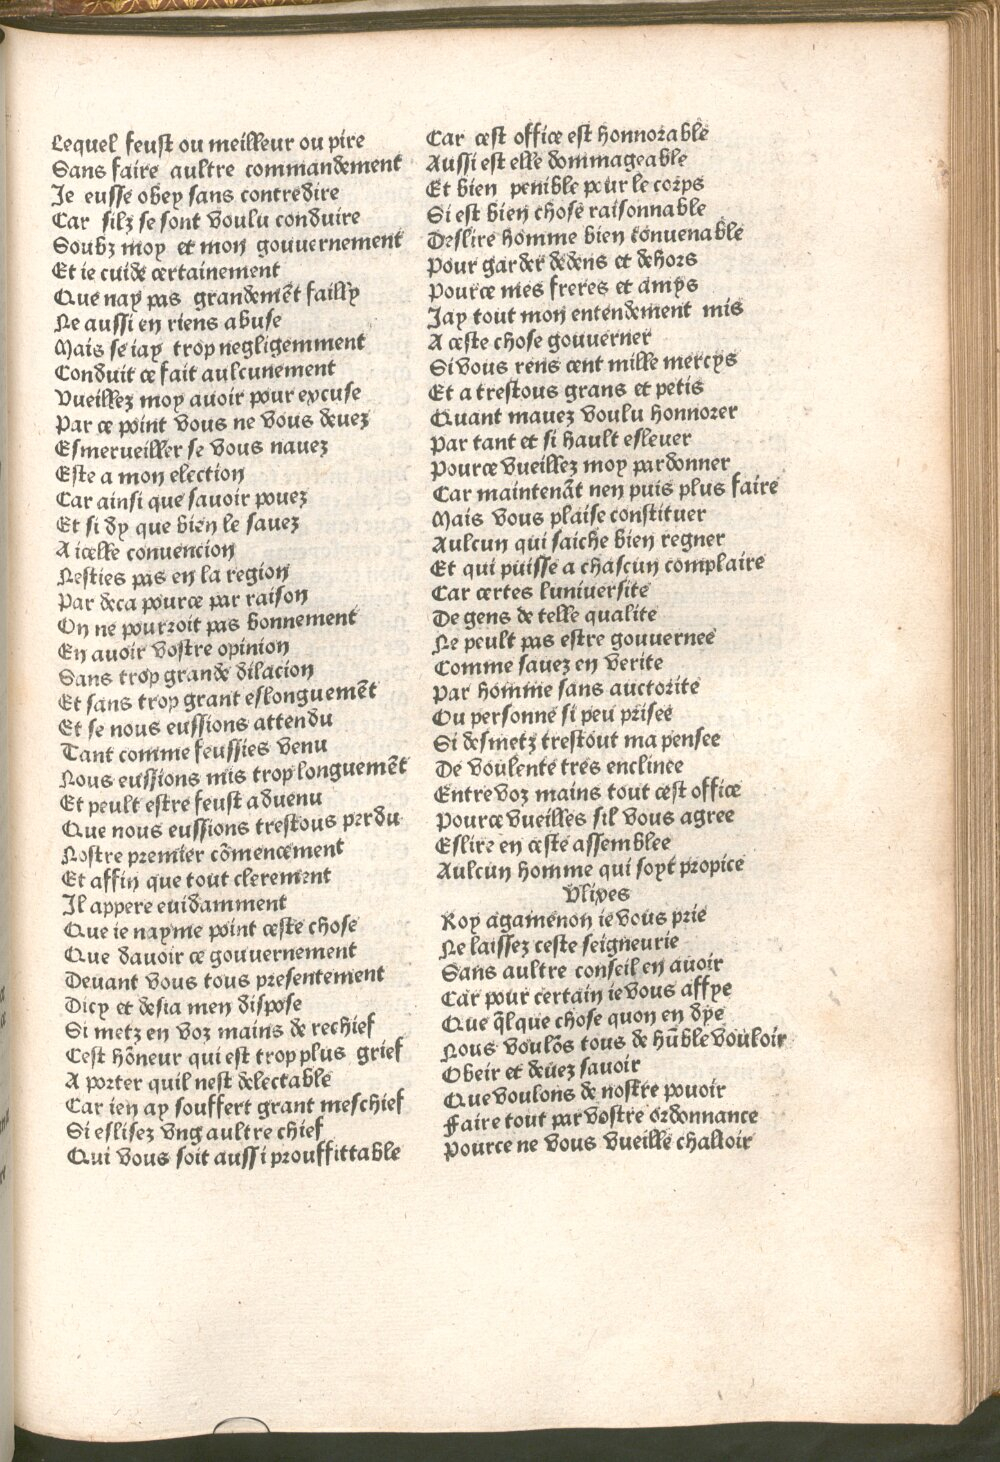 Lequel feust ou meilleur ou pire
Sans faire aultre commandement
Je eusse obey sans contredire
Car silz se sont voulu conduire
Soubz moy et mon gouuernement
Et ie cuide certainement
Que nay pas grandemẽt failly
Ne aussi en riens abuse
Mais se iay trop negligemment
Conduit ce fait aulcunement
Vueillez moy auoir pour excuse
Par ce point vous ne vous deuez
Esmerueiller se vous nauez
Este a mon election
Car ainsi que sauoir pouez
Et si dy que bien le sauez
A icelle conuencion
Nesties pas en la region
Par deca pource par raison
On ne pourroit pas bonnement
En auoir vostre opinion
Sans trop grande dilacion
Et sans trop grant eslonguemẽt
Et se nous eussions attendu
Tant comme feussies venu
Nous eussions mis trop longuemẽt
Et peult estre feust aduenu
Que nous eussions trestous perdu
Nostre premier cõmencement
Et affin que tout clerement
Il appere euidamment
Que ie nayme point ceste chose
Que dauoir ce gouuernement
Deuant vous tous presentement
Dicy et desia men dispose
Si metz en voz mains de rechief
Cest hõneur qui est trop plus grief
A porter quil nest delectable
Car ien ay souffert grant meschief
Si eslisez vng aultre chief
Qui vous soit aussi prouffittable
Car cest office est honnorable
Aussi est elle dommageable
Et bien penible pour le corps
Si est bien chose raisonnable
Deslire homme bien conuenable
Pour garder dedens et dehors
Pource mes freres et amys
Jay tout mon entendement mis
A ceste chose gouuerner
Si vous rens cent mille mercys
Et a trestous grans et petis
Quant mauez voulu honnorer
Par tant et si hault esleuer
Pource vueillez moy pardonner
Car maintenãt nen puis plus faire
Mais vous plaise constituer
Aulcun qui saiche bien regner
Et qui puisse a chascun complaire
Car certes luniuersite
De gens de telle qualite
Ne peult pas estre gouuernee
Comme sauez en verite
Par homme sans auctorite
Ou personne si peu prisee
Si desmetz trestout ma pensee
De voulente tres enclinee
Entre voz mains tout cest office
Pource vueilles sil vous agree
Eslire en ceste assemblee
Aulcun homme qui soyt propice
Vlixes
Roy agamenon ie vous prie
Ne laissez ceste seigneurie
Sans aultre conseil en auoir
Car pour certain ie vous affye
Que q̃lque chose quon en dye
Nous voulõs tous de hũble vouloir
Obeir et deuez sauoir
Que voulons de nostre pouoir
Faire tout par vostre ordonnance
Pource ne vous vueille challoir